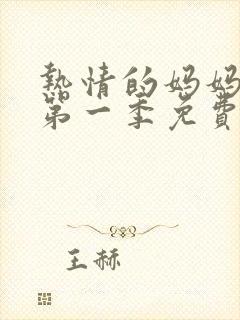 熱情的妈妈
第一季免費
王赫